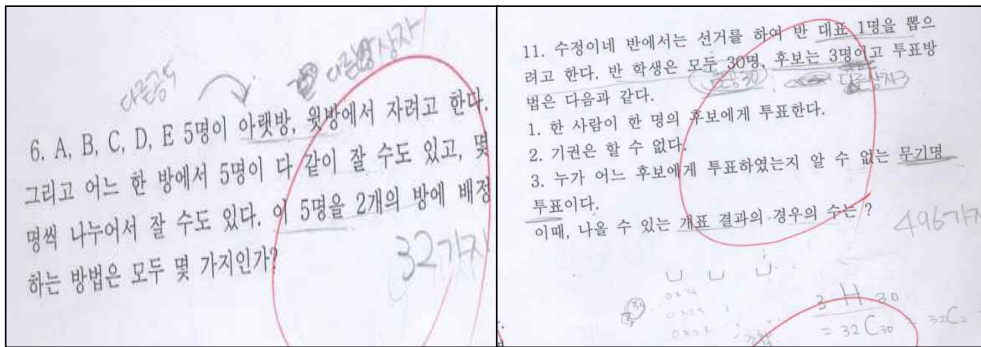 다른공5
다른 상자
6. A, B, C, D, E 5명이 아랫방, 윗방에서 자려고 한다.
그리고 어느 한 방에서 5명이 다 같이 잘 수도 있고, 몇
명씩 나누어서 잘 수도 있다. 이 5명을 2개의 방에 배정
하는 방법은 모두 몇 가지인가?
32가지
11. 수정이네 반에서는 선거를 하여 반 대표 1명을 뽑으
려고 한다. 반 학생은 모두 30명, 후보는 3명이고 투표방
법은 다음과 같다.
다른상자3
1. 한 사람이 한 명의 후보에게 투표한다.
2. 기권은 할 수 없다.
3. 누가 어느 후보에게 투표하였는지 알 수 없는 무기명
투표이다.
이때, 나올 수 있는 개표 결과의 경우의 수는 ?
496가지
3 H 30
= 32C30 = 32C2